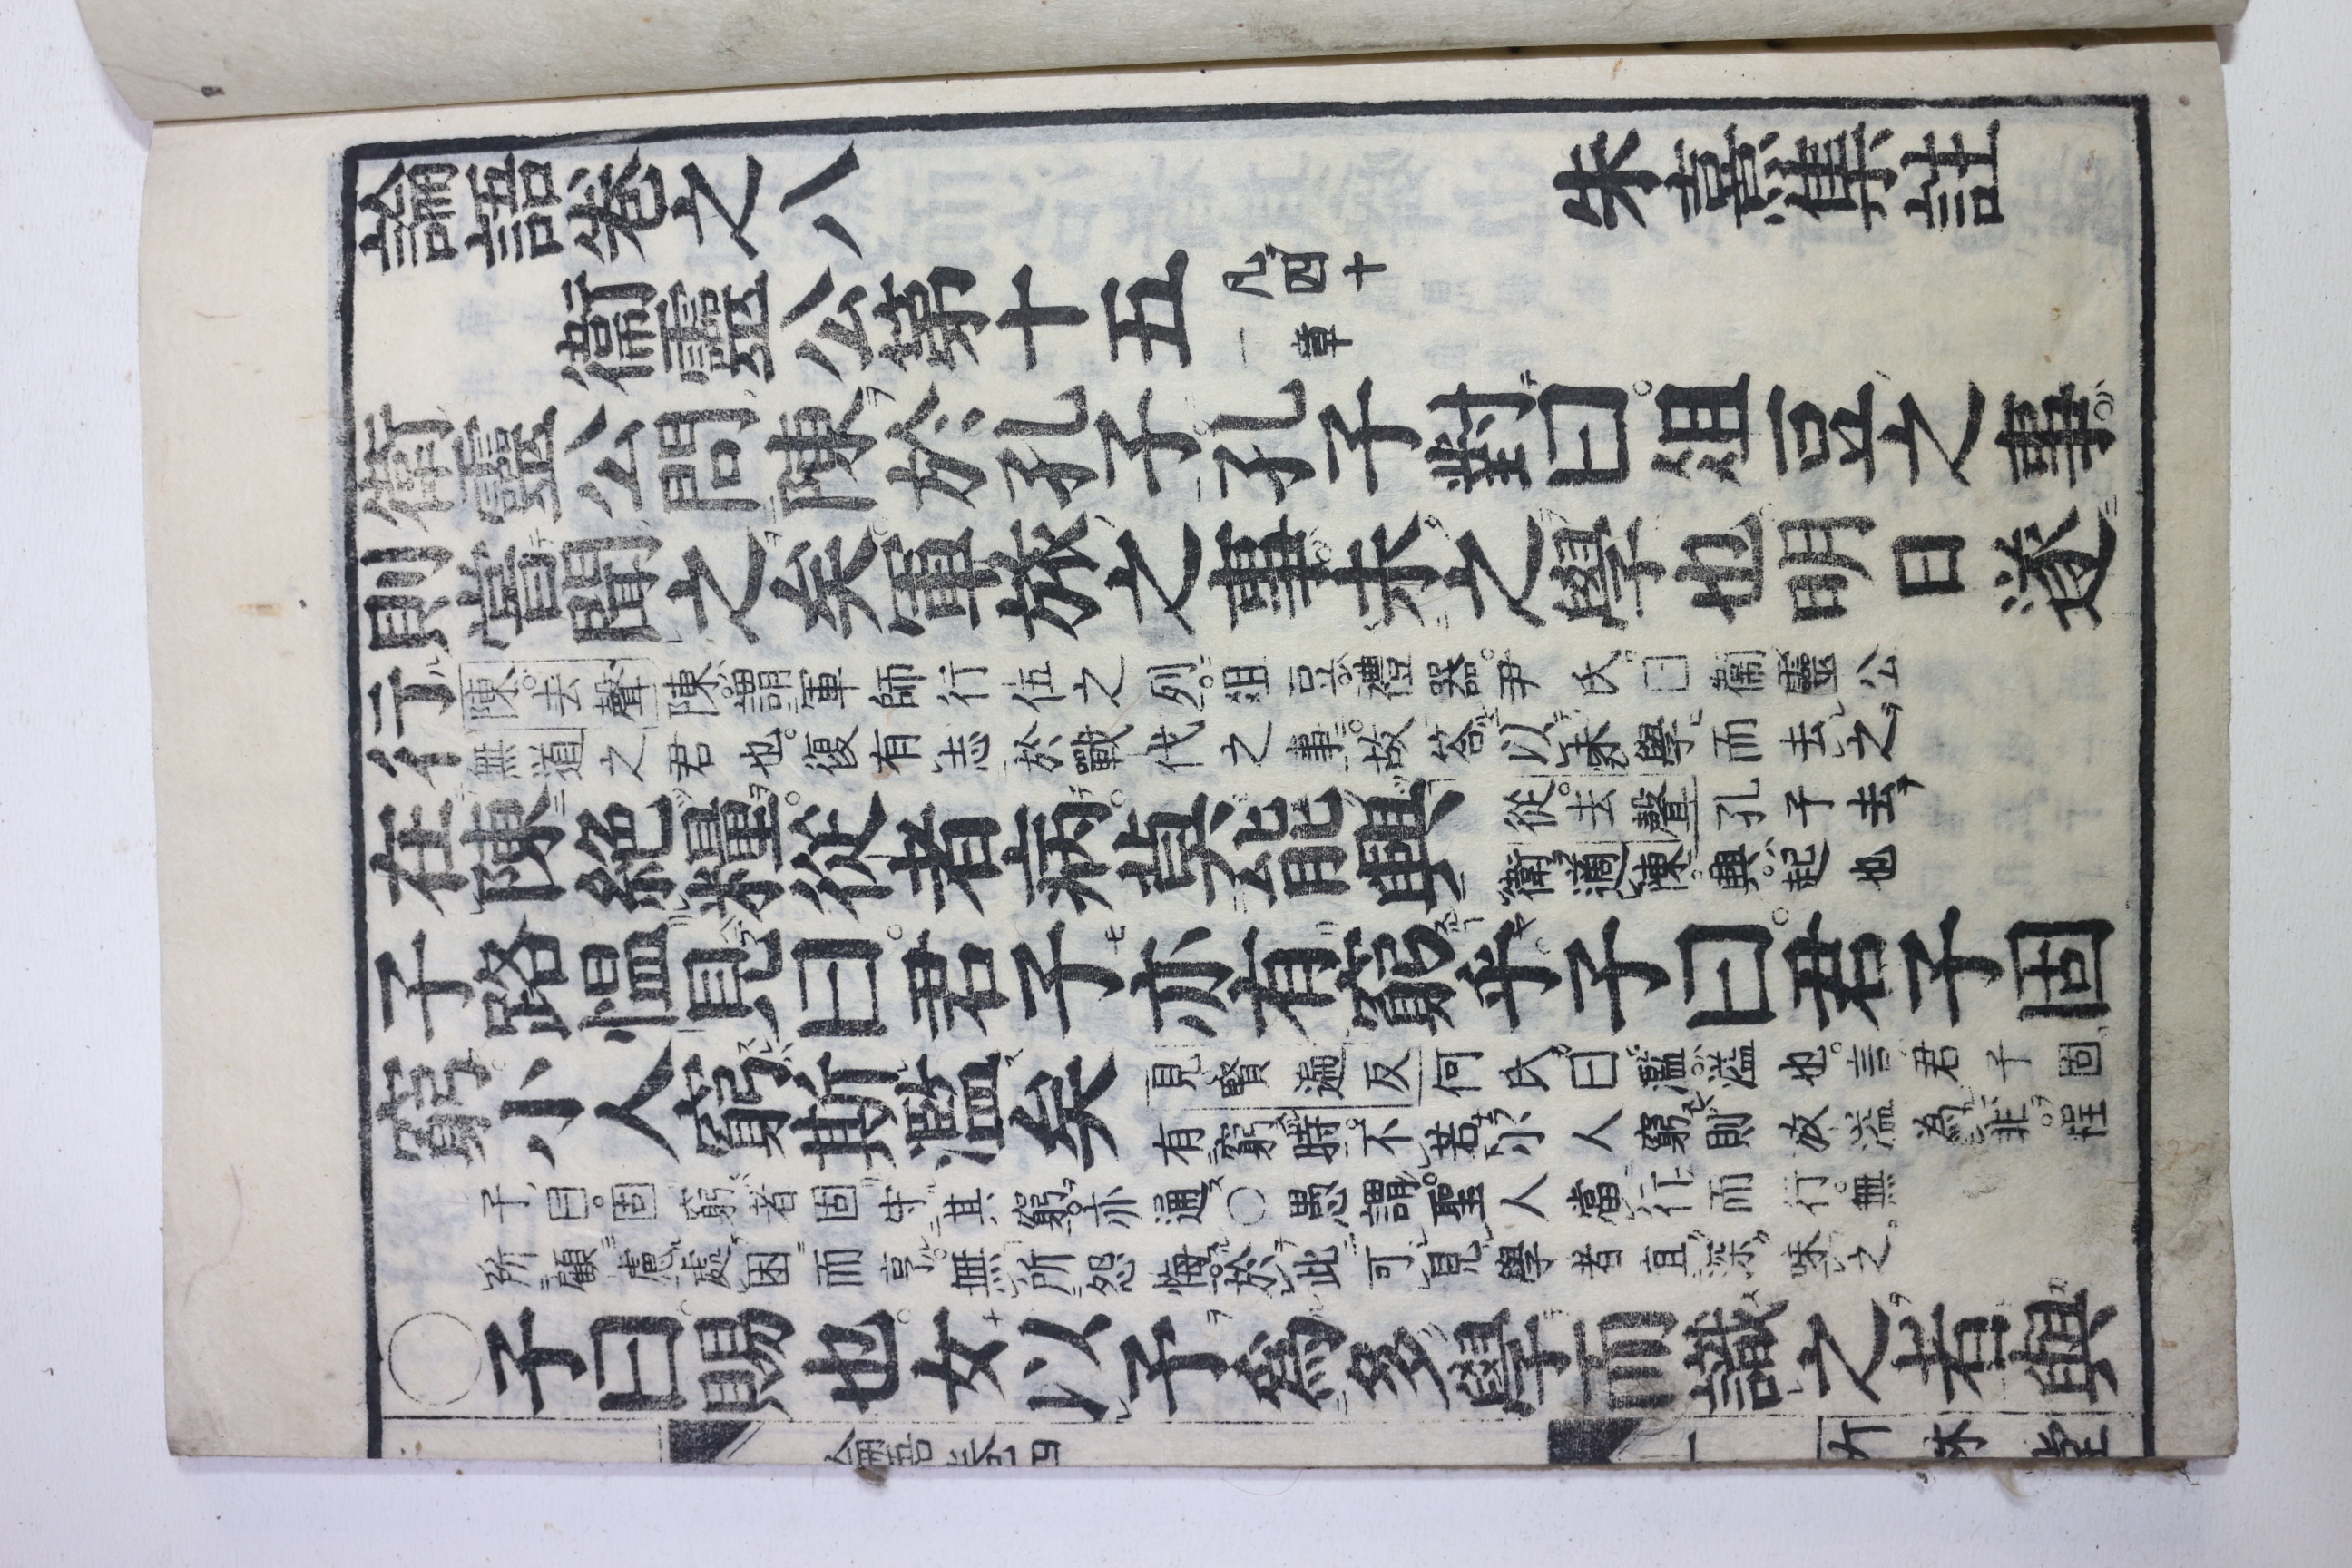 論語卷之八
朱熹集註
衞靈公第十五
凡四十
一章
衛靈公問陳於孔子孔子對曰俎豆之事
則嘗聞之矣軍旅之事未之學也明日遂
行
陳去聲陳謂軍師行伍之列俎豆禮器尹氏曰衞靈公
無道之君也復有志於戰伐之事故答以未學而去之
在陳絶糧從者病莫能興
從去聲孔子去
衛適陳興起也
子路慍見曰君子亦有窮乎子曰君子固
窮小人窮斯濫矣
見賢遍反何氏曰濫溢也言君子固
有窮時不若小人窮則放溢為非程
子曰固窮者固守其窮亦通○愚謂聖人當行而行無
所顧慮處困而亨無所怨悔於此可見學者宜深味之
○子曰賜也女以予爲多學而識之者與
論語卷四